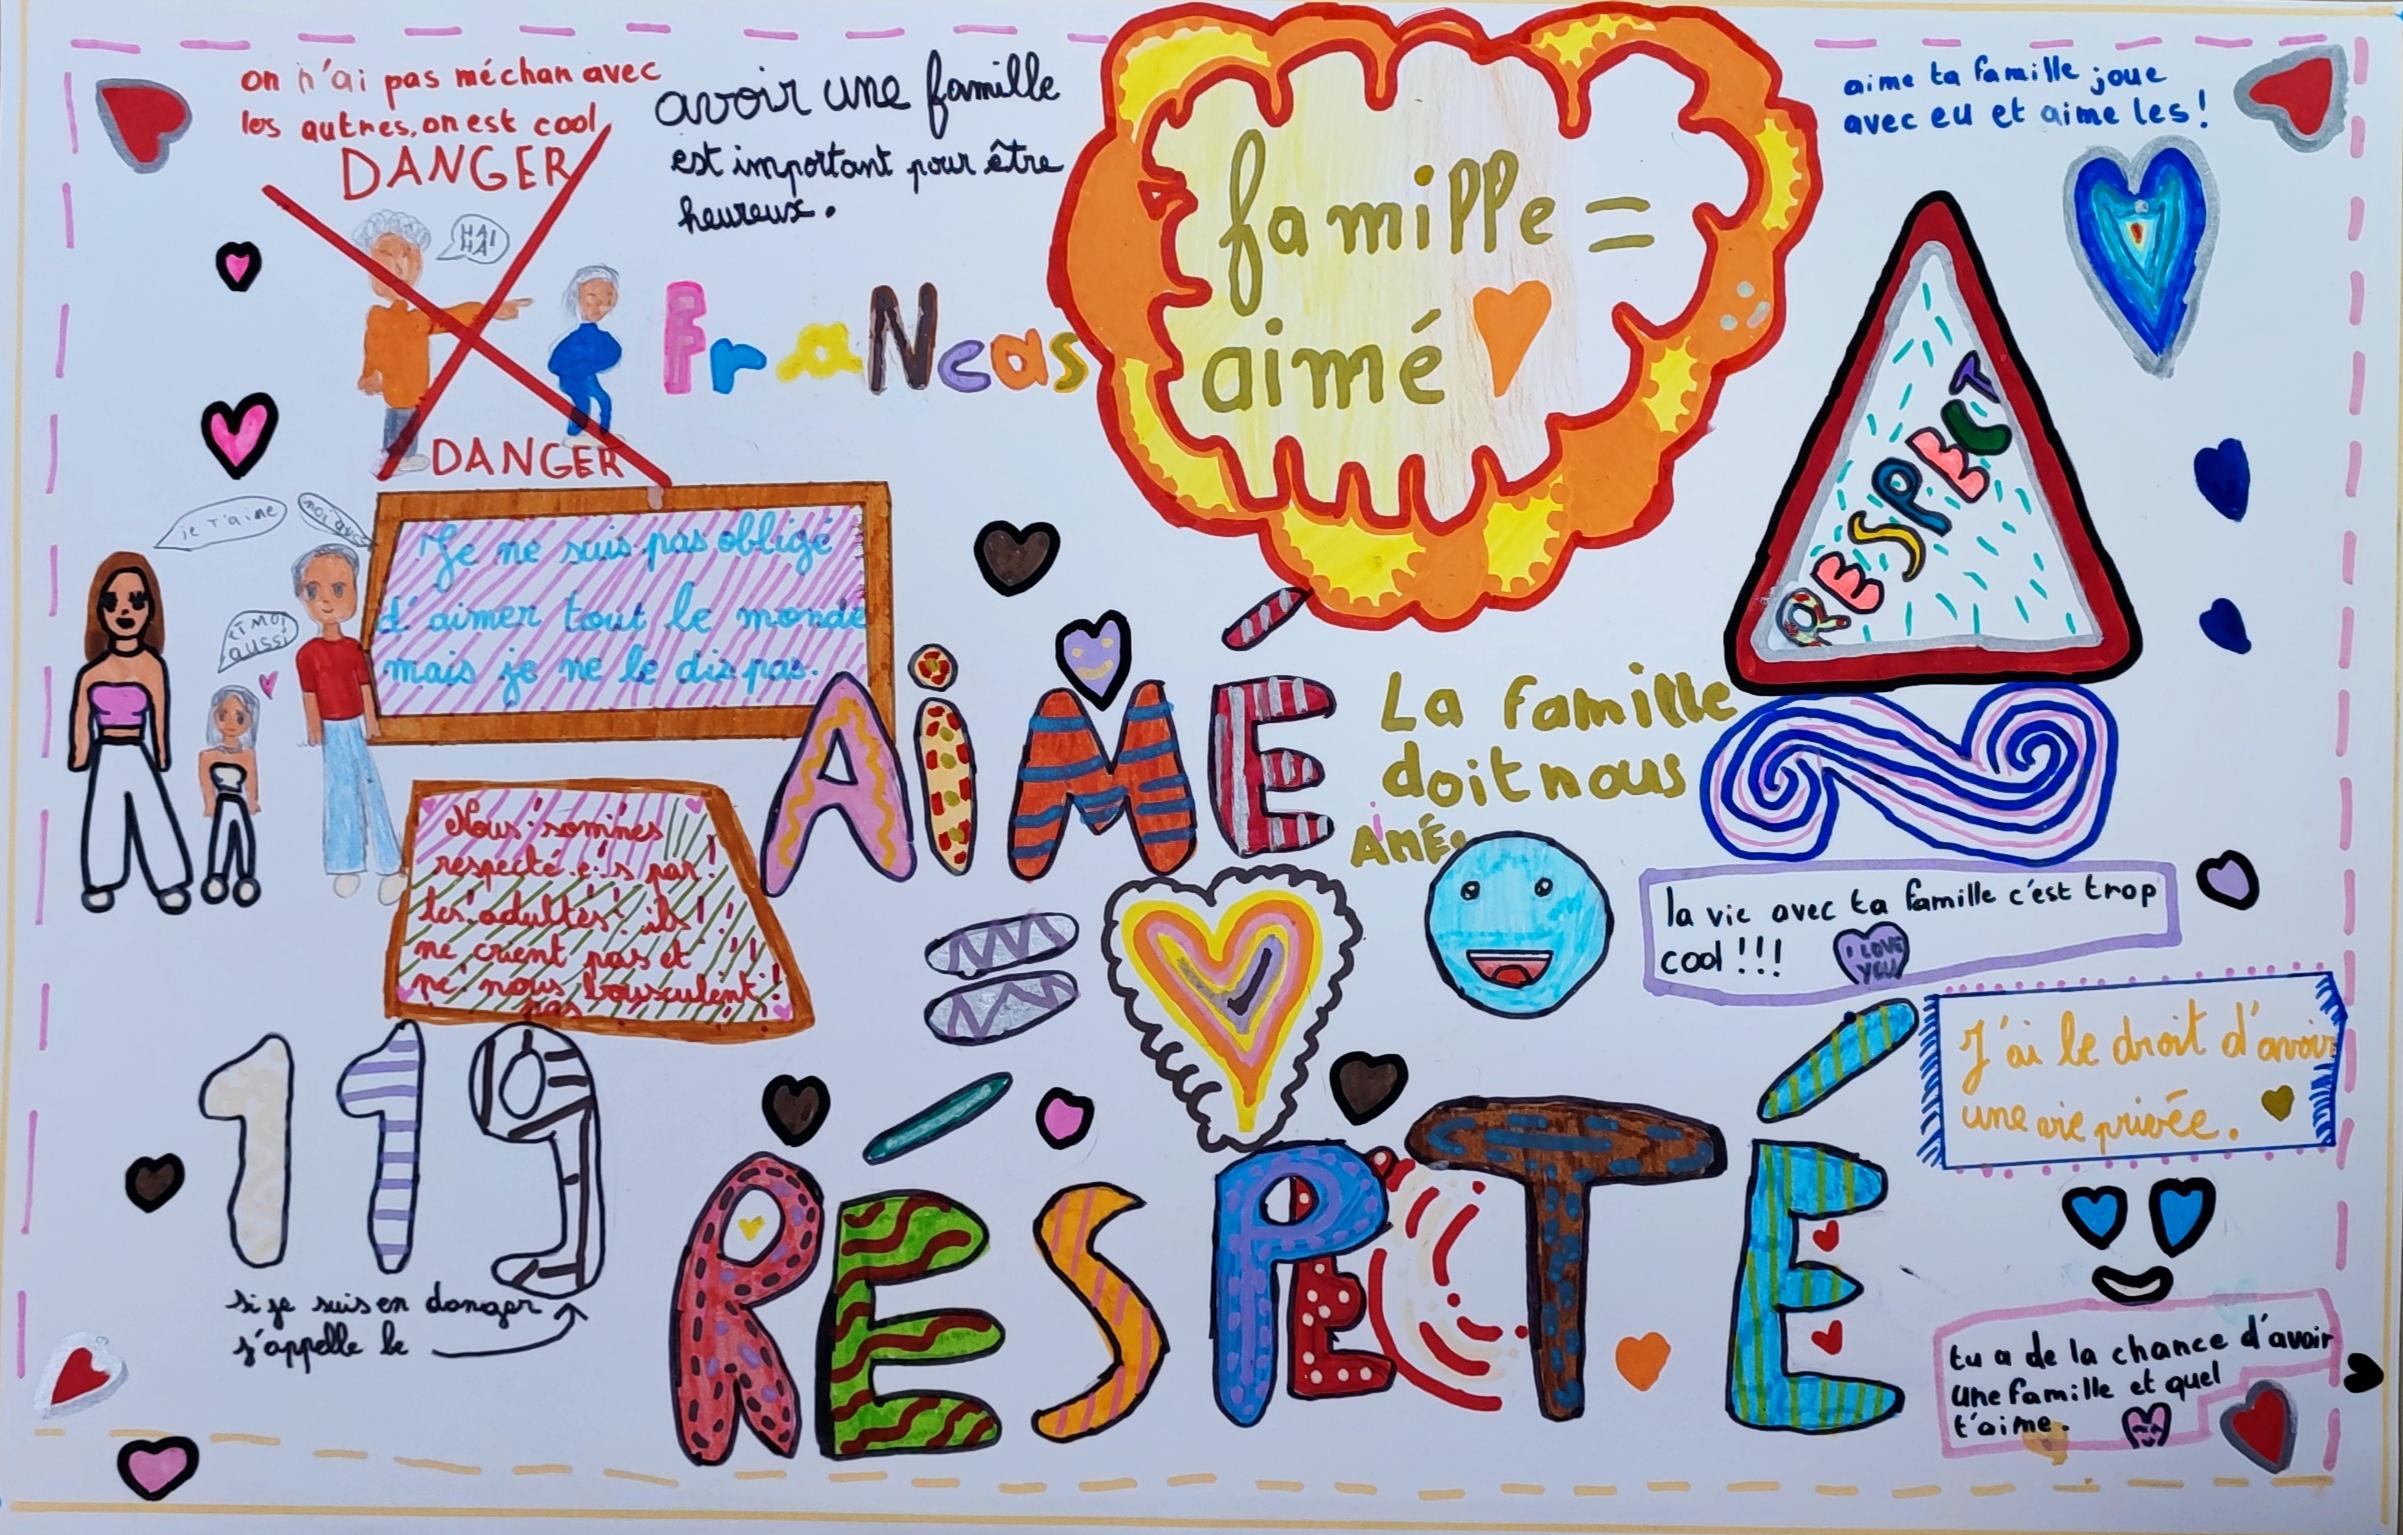 on n'ai pas méchan avec
les autres, on est cool
DANGER
HA!
HA!
DANGER
avoir une famille
est important pour être
heureux.
FraNcas
famille =
aimé
aime ta famille joue
avec eu et aime les!
RESPECT
je t'aime
moi aussi
ET MOI
aussi
Je ne suis pas obligé
d'aimer tout le monde
mais je ne le dis pas.
AiMÉ
La famille
doit nous
AiMÉ.
Nous sommes
respecté.e.s par
les adultes: ils
ne crient pas et
ne nous bousculent
pas
=
la vie avec ta famille c'est trop
cool!!!
I LOVE
YOU
J'ai le droit d'avoir
une vie privée.
119
si je suis en danger
j'appelle le
RÉSPECTÉ
tu a de la chance d'avoir
une famille et quel
t'aime.